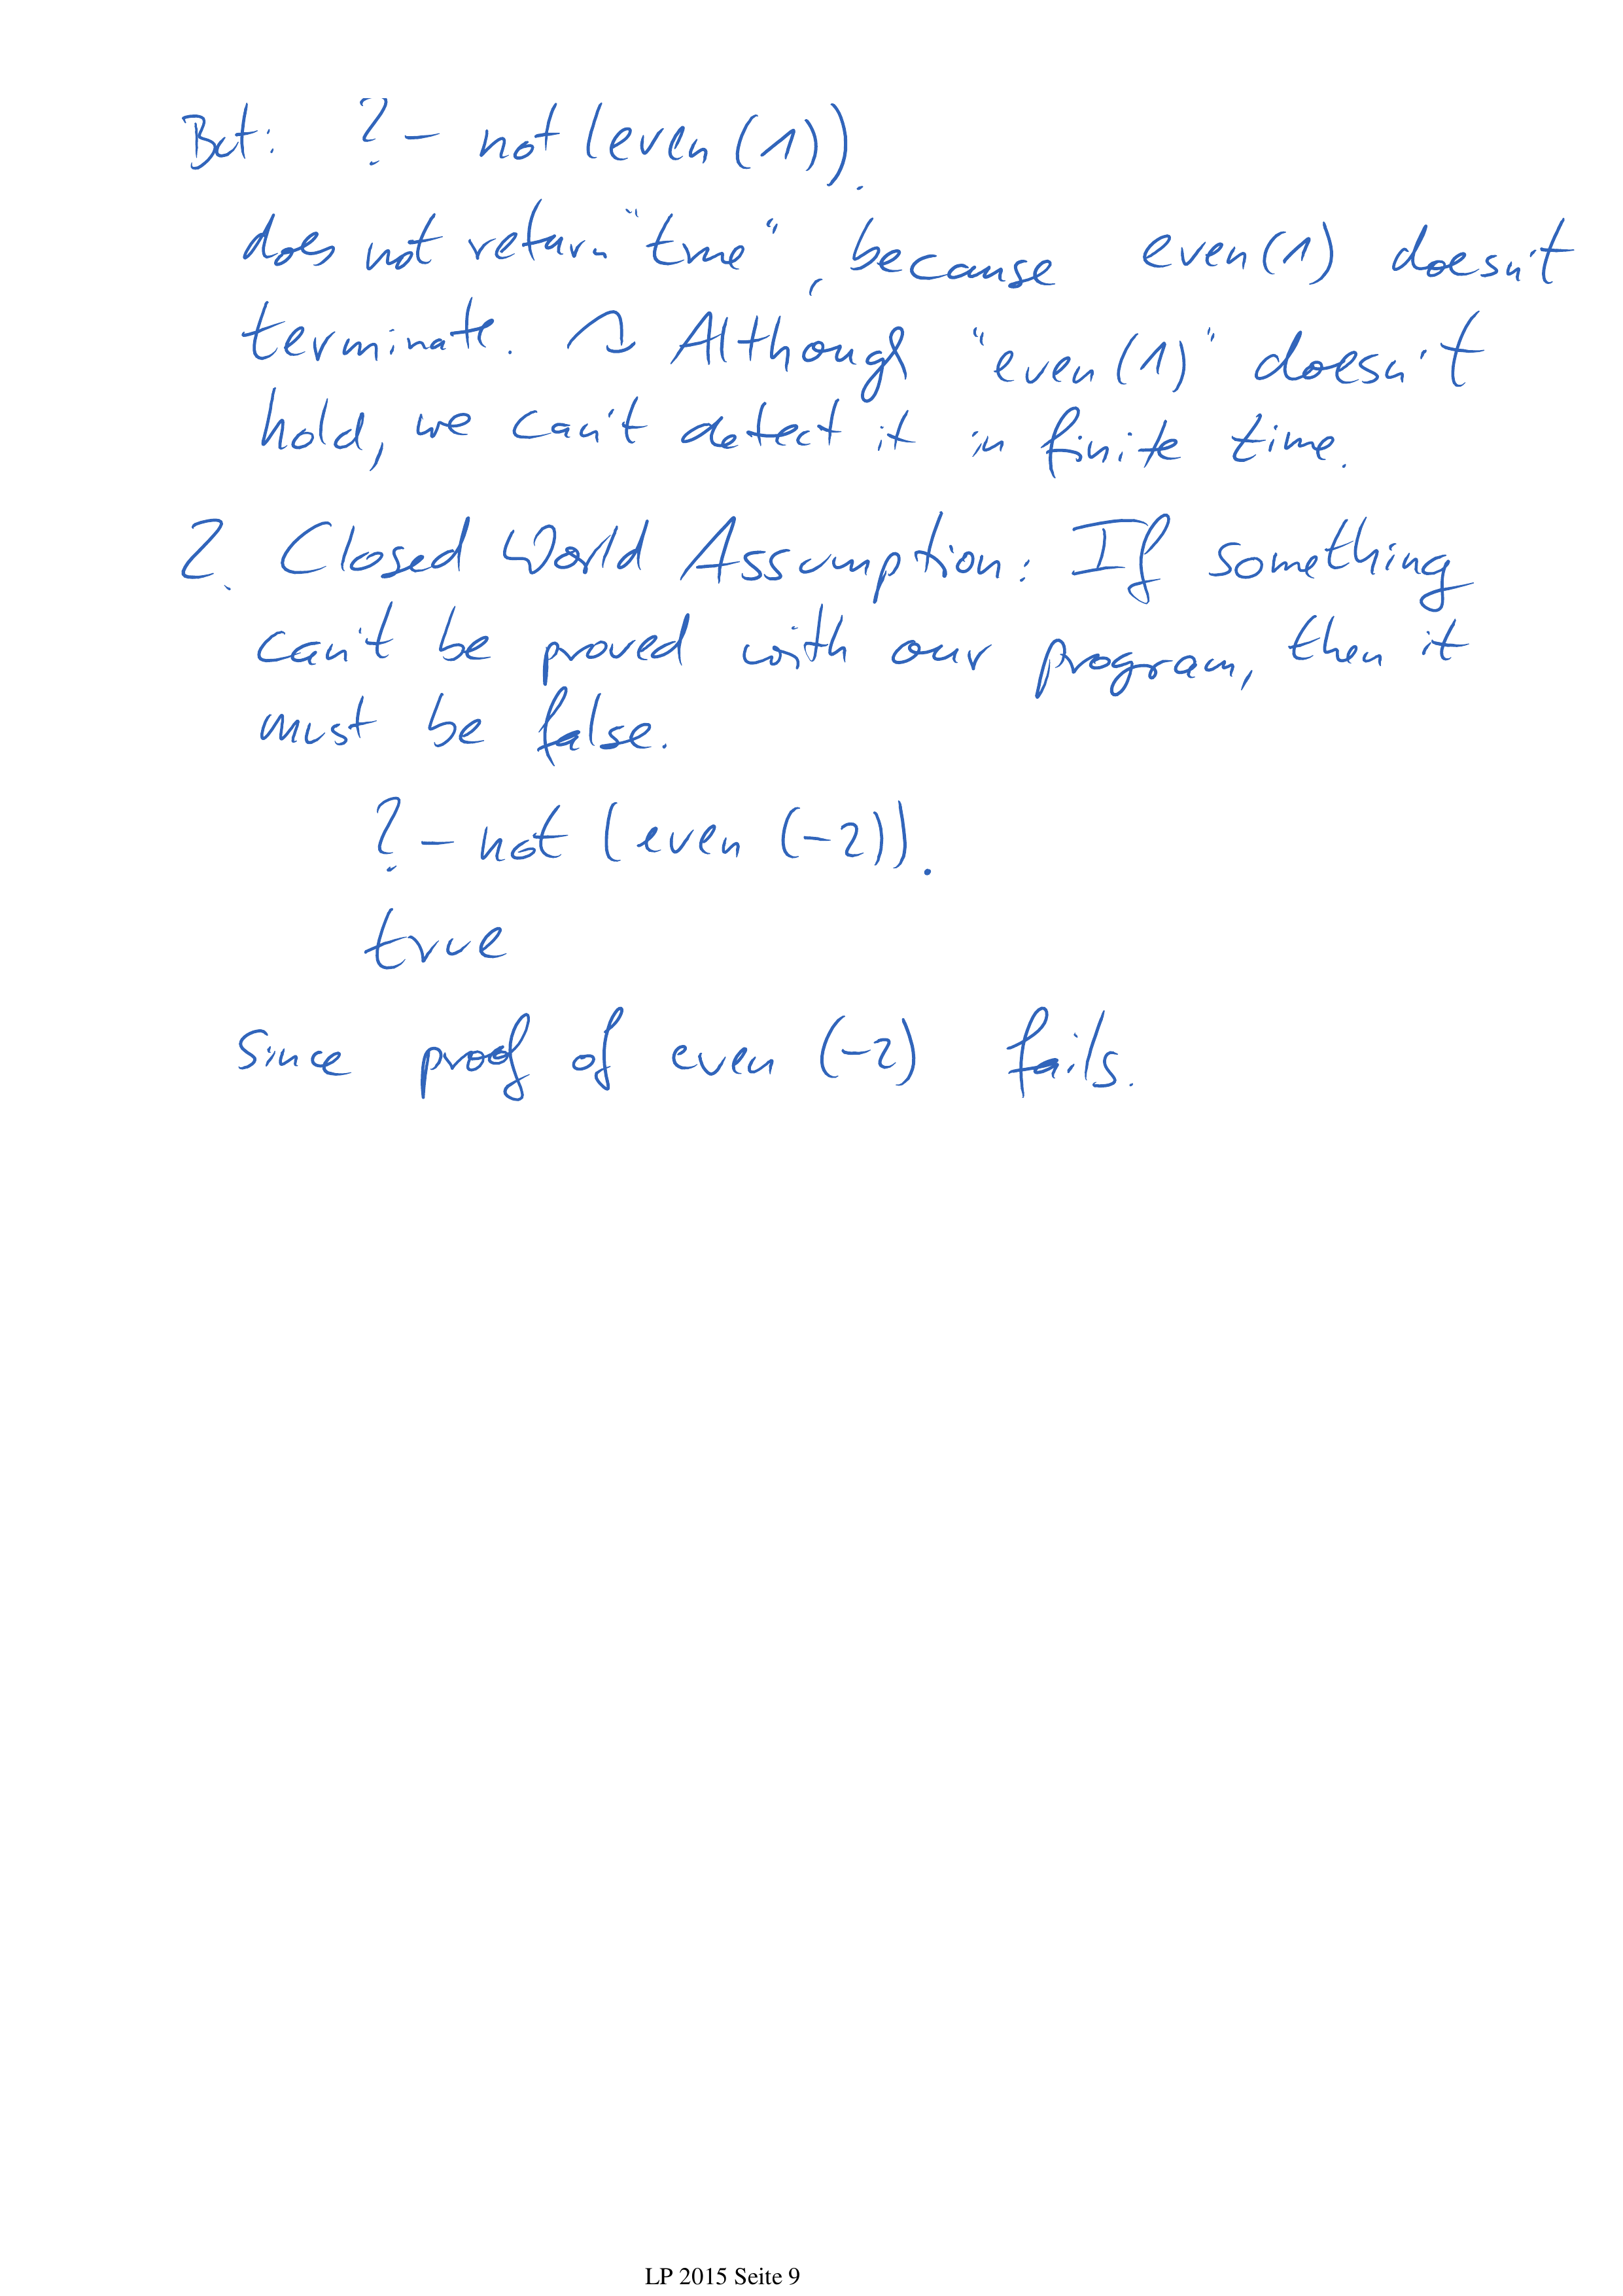 But: ?- not (even (1)).
does not return "true", because even (1) doesn't
terminate. ↷ Although "even (1)" doesn't
hold, we can't detect it in finite time.
2. Closed World Assumption: If something
can't be proved with our program, then it
must be false.
?- not (even (-2)).
true
since proof of even (-2) fails.
LP 2015 Seite 9